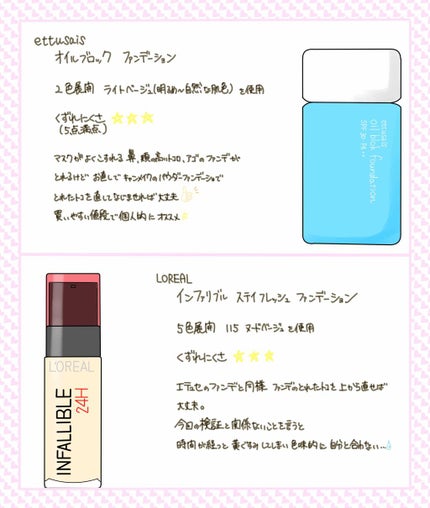 ettusais
オイルブロック ファンデーション
2色展開 ライトベージュ(明るめ~自然な肌色) を使用
くずれにくさ ★★★
(5点満点)
マスクがよくこすれる 鼻、頬の高いトコロ、アゴのファンデが
とれるけど お直しで キャンメイクのパウダーファンデーションで
とれたトコを直してなじませれば大丈夫
買いやすい値段で個人的にオススメ
ettusais
oil blok foundation
SPF30・PA++
LOREAL
インファリブル ステイフレッシュ ファンデーション
5色展開 115 ヌードベージュを使用
くずれにくさ ★★★
エテュセのファンデと同様 ファンデのとれたトコを上から直せば
大丈夫。
今回の検証と関係ないことを言うと
時間が経つと 黄ぐすみしてしまい色味的に自分と合わない…
L'OREAL
INFALLIBLE
24H